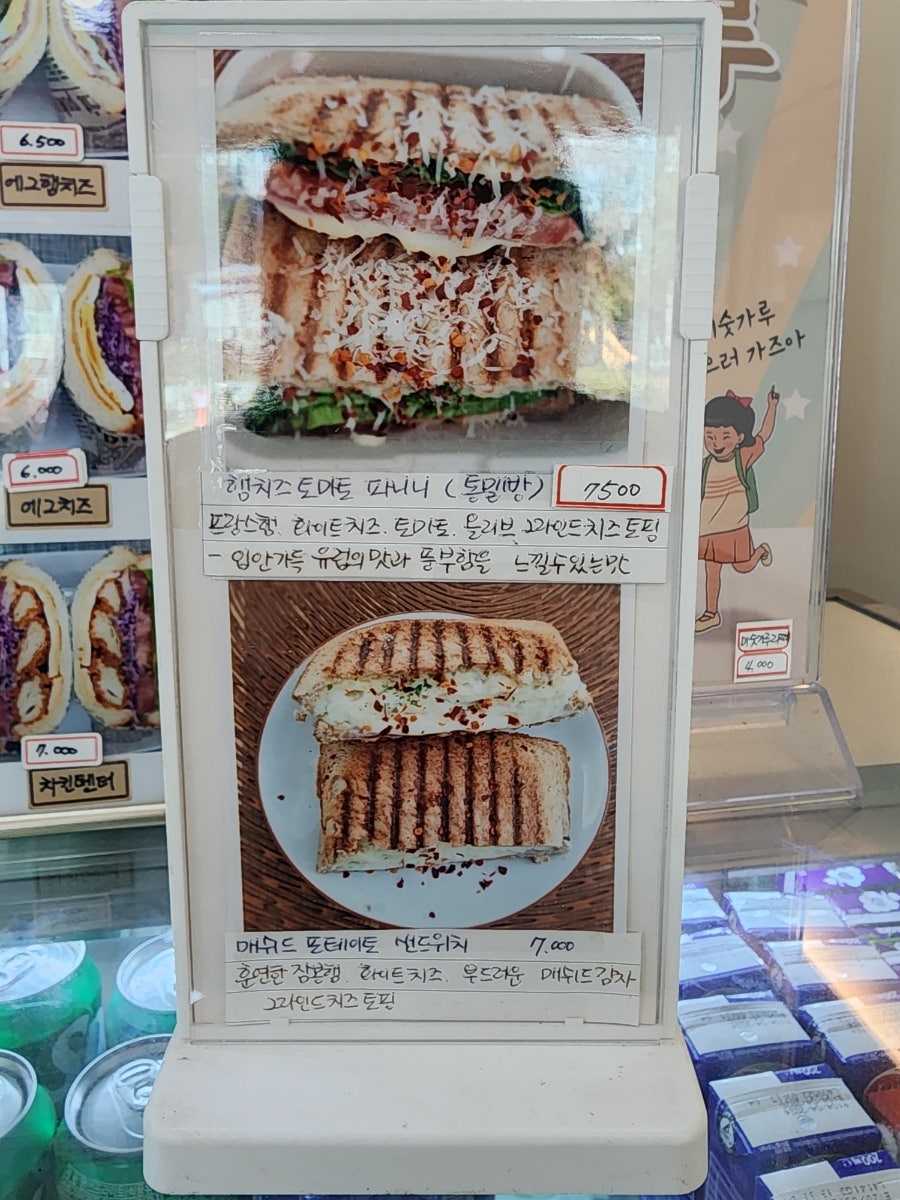 6.500
에그햄치즈
6.000
에그치즈
7.000
치킨텐더
햄치즈토마토 파니니 (통밀빵) 7500
프랑스햄. 화이트치즈. 토마토. 올리브. 그라인드치즈토핑
- 입안가득 유럽의맛과 풍부함을 느낄수있는맛
매쉬드 포테이토 샌드위치 7.000
훈연한 잠봉햄. 화이트치즈. 부드러운 매쉬드감자
그라인드치즈토핑
숫가루
으러 가즈아
미숫가루라떼
4.000